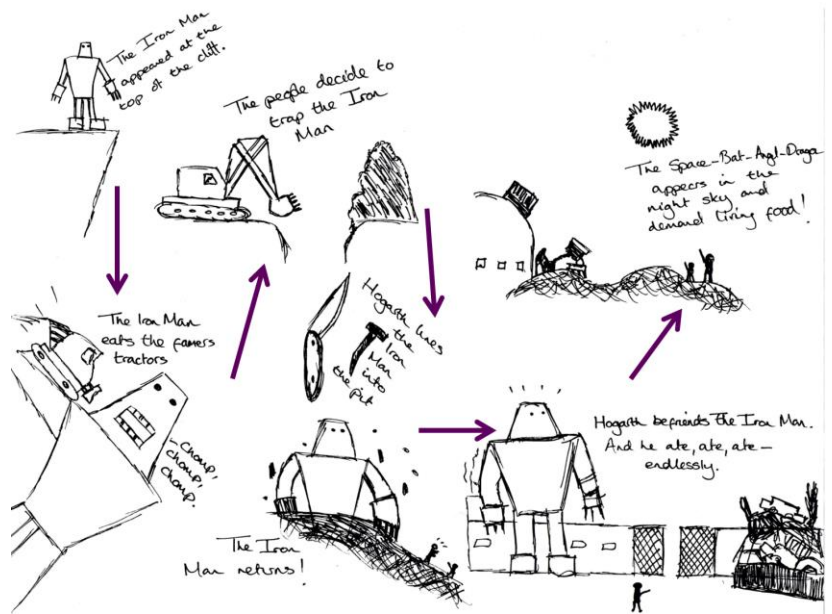 The Iron Man
appeared at the
top of the cliff.
The Iron Man
eats the famers
tractors
- chomp,
chomp,
chomp.
The people decide to
trap the Iron
Man
Hogarth lures
the
Iron
Man
into
the pit
The Iron
Man returns!
Hogarth befriends The Iron Man.
And he ate, ate, ate -
endlessly.
The Space-Bat-Angel-Dragon
appears in the
night sky and
demand living food!